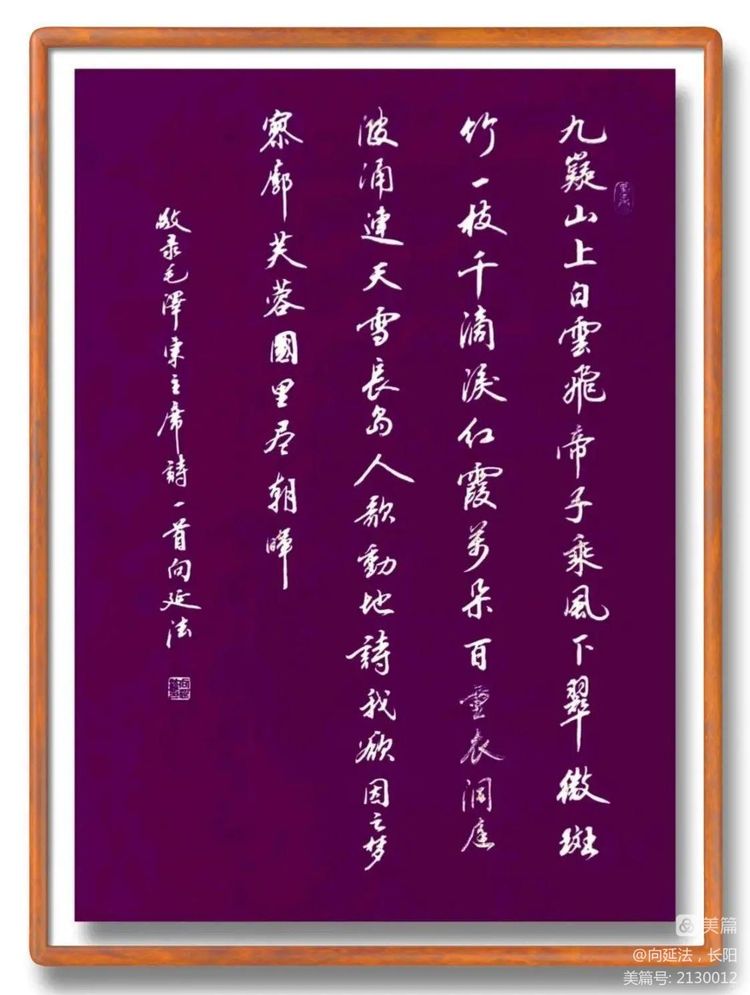 九嶷山上白雲飛帝子乘風下翠微斑
竹一枝千滴淚红霞萬朵百重衣洞庭
波涌連天雪長島人歌動地詩我欲因之梦
寥廓芙蓉國里尽朝暉
敬录毛澤東主席詩一首向延法
美篇
@向延法，长阳
美篇号: 2130012